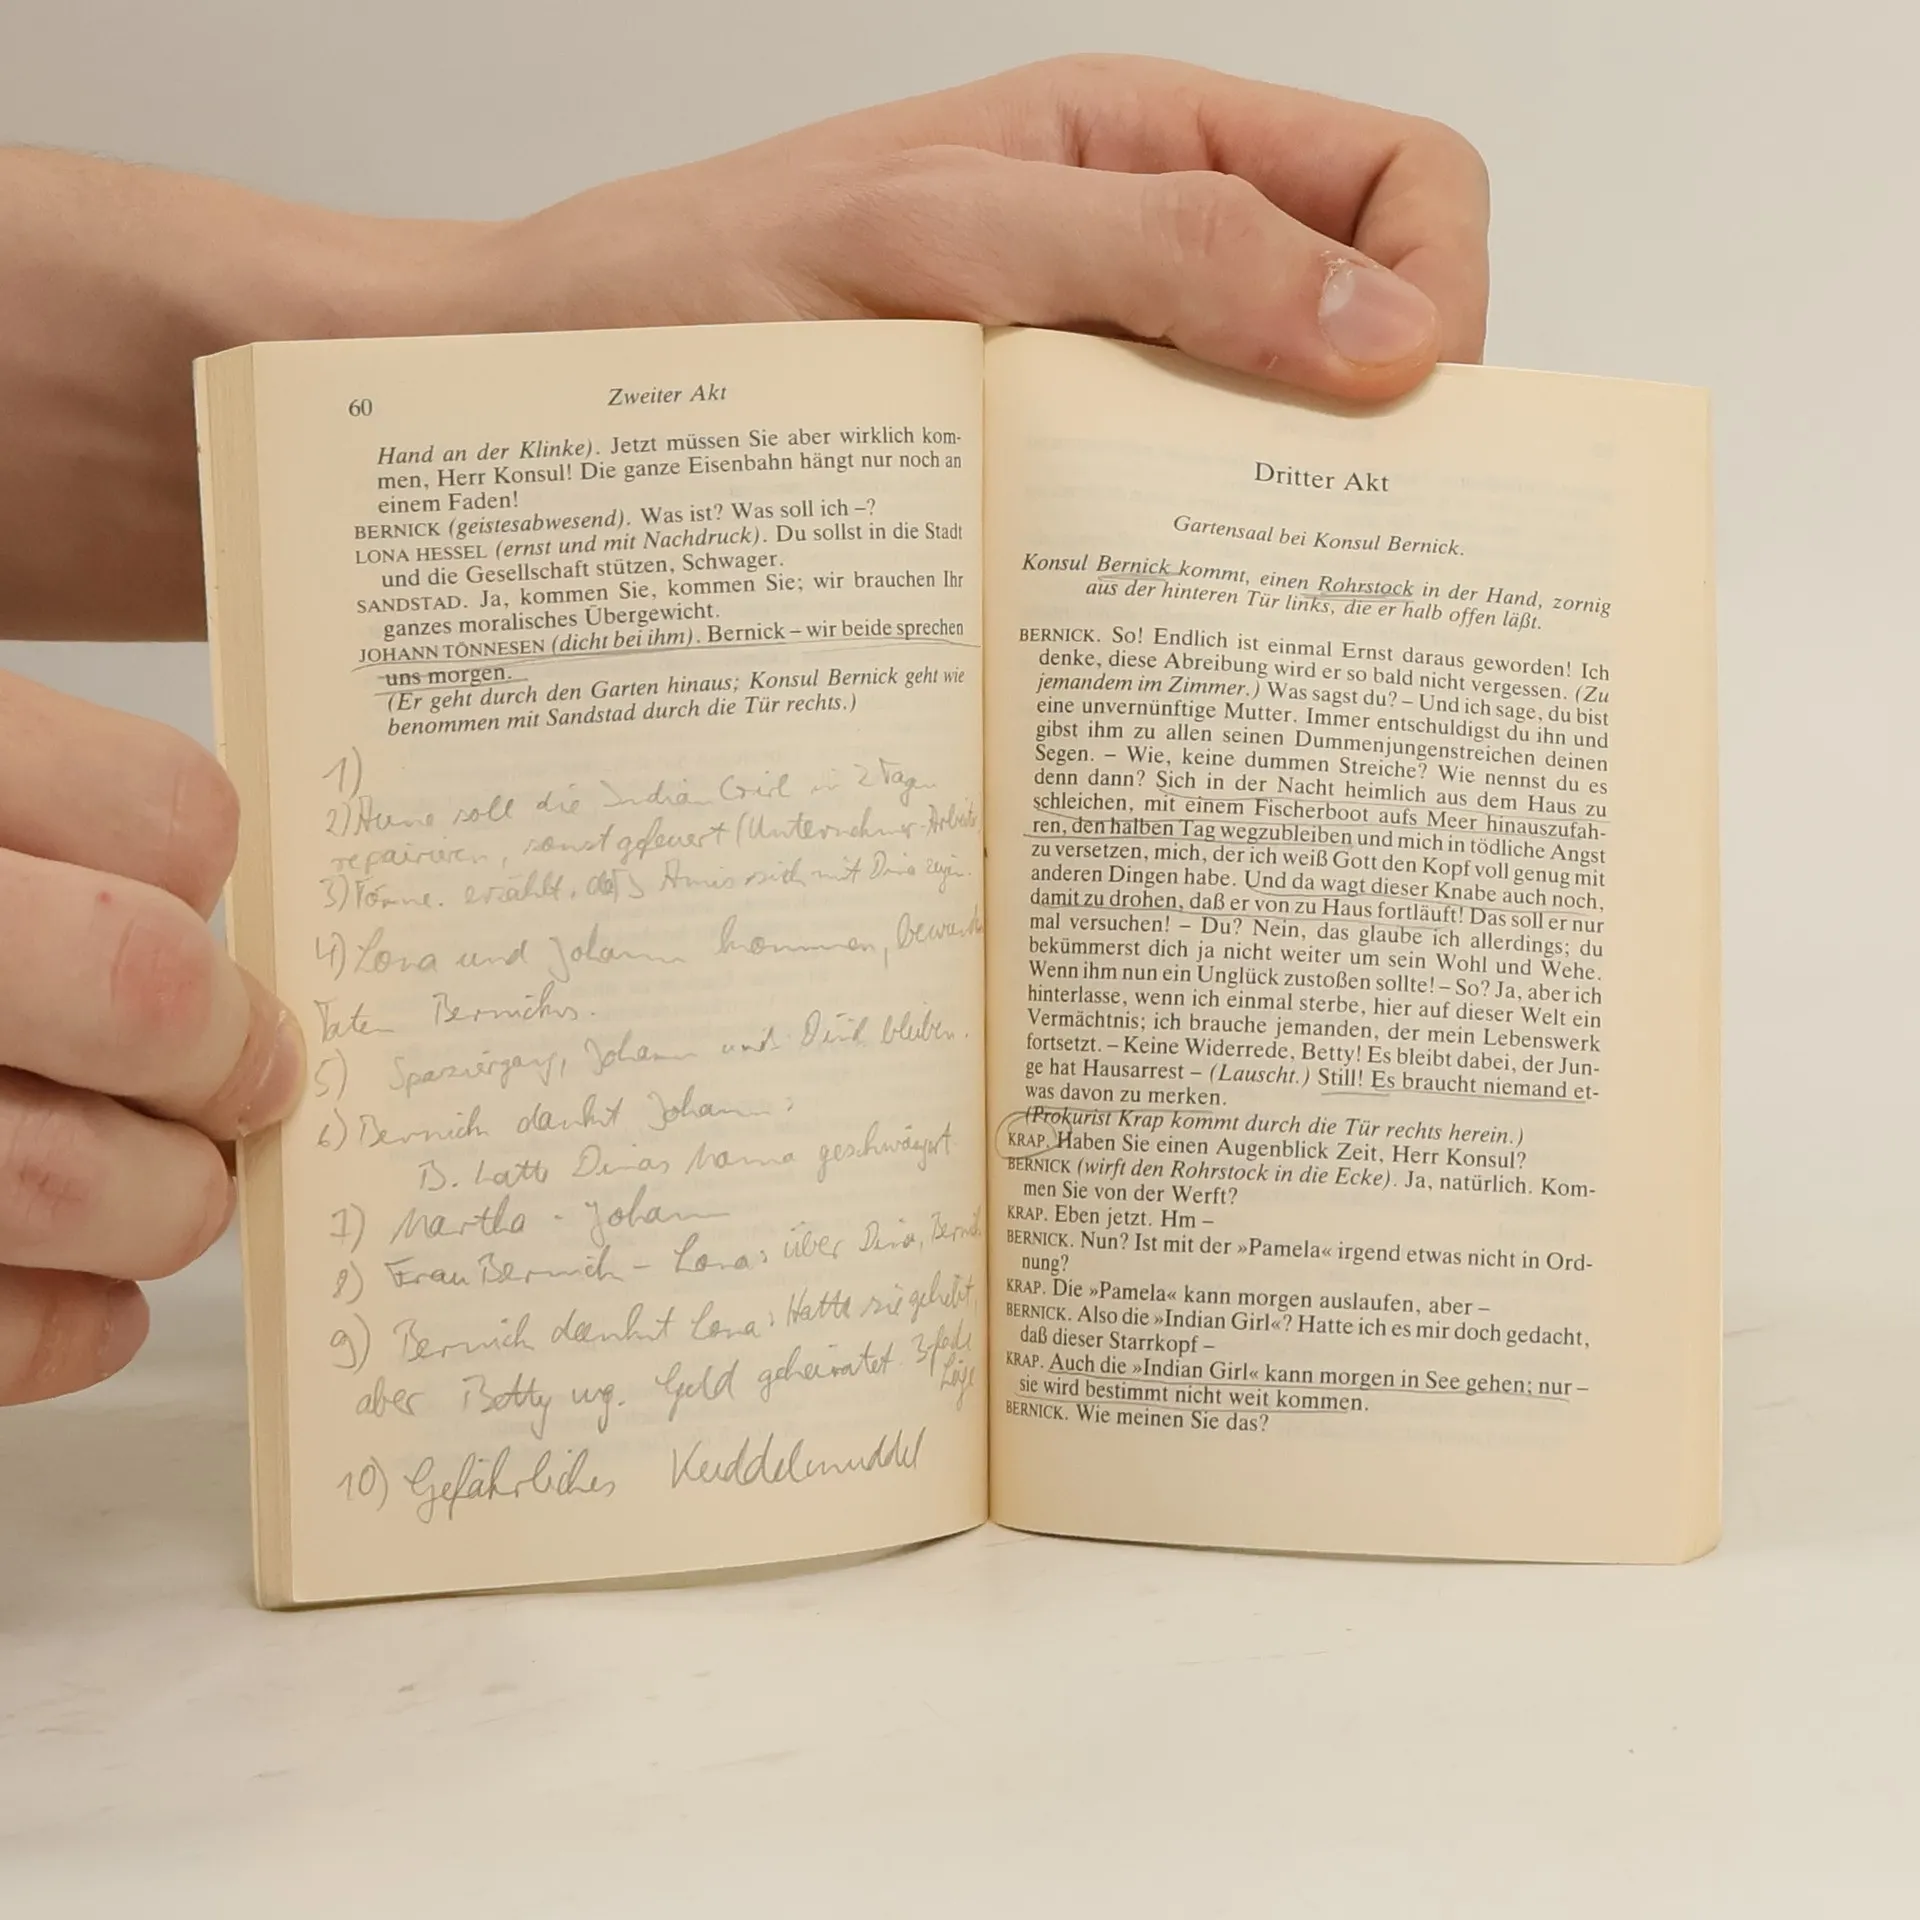 60
Zweiter Akt
Hand an der Klinke). Jetzt müssen Sie aber wirklich kom-
men, Herr Konsul! Die ganze Eisenbahn hängt nur noch an
einem Faden!
BERNICK (geistesabwesend). Was ist? Was soll ich –?
LONA HESSEL (ernst und mit Nachdruck). Du sollst in die Stadt
und die Gesellschaft stützen, Schwager.
SANDSTAD. Ja, kommen Sie, kommen Sie; wir brauchen Ihr
ganzes moralisches Übergewicht.
JOHANN TÖNNESEN (dicht bei ihm). Bernick – wir beide sprechen
uns morgen.
(Er geht durch den Garten hinaus; Konsul Bernick geht wie
benommen mit Sandstad durch die Tür rechts.)
1)
2) soll die Indian Girl in 2 Tagen
repairieren, sonst gefeuert (Unternehmer-Arbeiter
3) Tönne. erzählt, daß Amis sich mit Dina zeigen.
4) Lona und Johann kommen,
Taten Bernicks.
5) Spaziergang, Johann und Dina bleiben.
6) Bernick dankt Johann:
B. hatte Dinas Mama geschwängert
7) Martha - Johann
8) Frau Bernick - Lona: über Dina, Bernick
9) Bernick dankt Lona: Hatte sie geliebt,
aber Betty wg. Geld geheiratet 3fache
Lüge
10) Gefährliches Kuddelmuddel
Dritter Akt
Gartensaal bei Konsul Bernick.
Konsul Bernick kommt, einen Rohrstock in der Hand, zornig
aus der hinteren Tür links, die er halb offen läßt.
BERNICK. So! Endlich ist einmal Ernst daraus geworden! Ich
denke, diese Abreibung wird er so bald nicht vergessen. (Zu
jemandem im Zimmer.) Was sagst du? – Und ich sage, du bist
eine unvernünftige Mutter. Immer entschuldigst du ihn und
gibst ihm zu allen seinen Dummenjungenstreichen deinen
Segen. – Wie, keine dummen Streiche? Wie nennst du es
denn dann? Sich in der Nacht heimlich aus dem Haus zu
schleichen, mit einem Fischerboot aufs Meer hinauszufah-
ren, den halben Tag wegzubleiben und mich in tödliche Angst
zu versetzen, mich, der ich weiß Gott den Kopf voll genug mit
anderen Dingen habe. Und da wagt dieser Knabe auch noch,
damit zu drohen, daß er von zu Haus fortläuft! Das soll er nur
mal versuchen! – Du? Nein, das glaube ich allerdings; du
bekümmerst dich ja nicht weiter um sein Wohl und Wehe.
Wenn ihm nun ein Unglück zustoßen sollte! – So? Ja, aber ich
hinterlasse, wenn ich einmal sterbe, hier auf dieser Welt ein
Vermächtnis; ich brauche jemanden, der mein Lebenswerk
fortsetzt. – Keine Widerrede, Betty! Es bleibt dabei, der Jun-
ge hat Hausarrest – (Lauscht.) Still! Es braucht niemand et-
was davon zu merken.
(Prokurist Krap kommt durch die Tür rechts herein.)
KRAP. Haben Sie einen Augenblick Zeit, Herr Konsul?
BERNICK (wirft den Rohrstock in die Ecke). Ja, natürlich. Kom-
men Sie von der Werft?
KRAP. Eben jetzt. Hm –
BERNICK. Nun? Ist mit der »Pamela« irgend etwas nicht in Ord-
nung?
KRAP. Die »Pamela« kann morgen auslaufen, aber –
BERNICK. Also die »Indian Girl«? Hatte ich es mir doch gedacht,
daß dieser Starrkopf –
KRAP. Auch die »Indian Girl« kann morgen in See gehen; nur –
sie wird bestimmt nicht weit kommen.
BERNICK. Wie meinen Sie das?